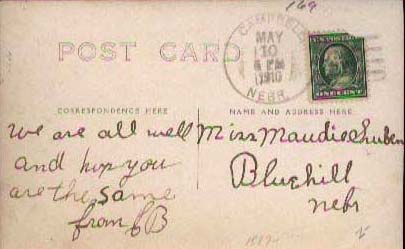 169
POST CARD
CAMPBELL
MAY
10
6 PM
1910
NEBR.
ONE CENT
CORRESPONDENCE HERE
NAME AND ADDRESS HERE
We are all well
and hope you
are the same
from B
Miss Maudie Shuben
Bluehill
Nebr